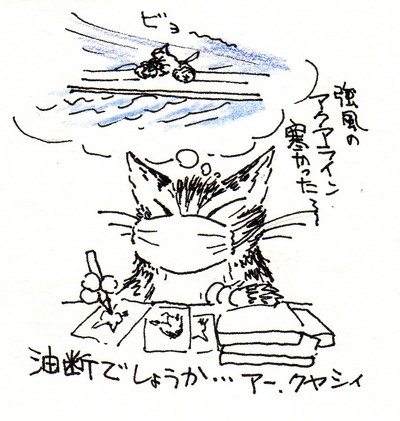 ビュ〜〜
強風の
アクアライン
寒かった〜
油断でしょうか… アー、クヤシイ